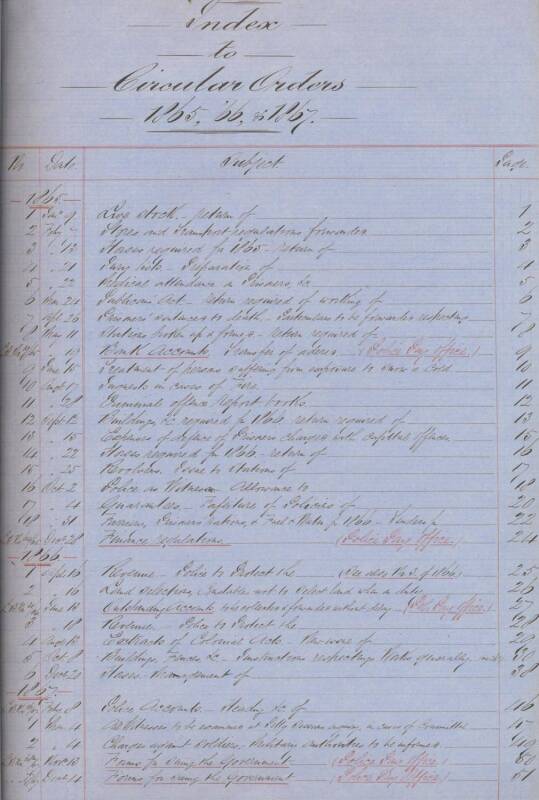 Index
to
Circular Orders
1865, '66, & 1867.
No. Date Subject Page
1865
1 Jany 9 Live stock - return of 1
2 Feby Stores and Transport regulations forwarded 2
3 " 13 Horses required for 1865 - return of 3
4 " 21 Pay lists - Preparation of 4
5 " 22 Medical attendance on Prisoners, &c 5
6 Mar 24 Publicans Act - return required of working of 6
7 Apl 26 Prisoners sentenced to death - to be forwarded respecting 7
8 May 11 Stations broken up or formed - return required of 8
" 13 Bank Accounts Transfer of (Police Pay Office.) 9
9 June 15 Treatment of persons suffering from exposure to snow & cold 10
10 Augt 17 Inquests in cases of Fire. 11
11 " 28 Criminal offence report books 12
12 Sept 12 Buildings, &c required for 1866 return required of 13
13 " 15 Expenses of defence of Prisoners charged with capital offences 15
14 " 22 Horses required for 1866 - return of 16
15 " 25 Revolvers. Issue to Stations of 17
16 Oct 2 Police as Witnesses - Allowance to 18
17 " 4 Guarantees - Forfeiture of Policies of 20
18 " 31 Prisoners Rations, & Fuel & Water for 1866 - Tenders for 22
28 Finance regulations (Police Pay Office.) 24
1866
1 Apl 16 Revenue - Police to Protect the (See also No 3. of 1866) 25
2 " 16 Land Selections, Constables not to select land when on duty 26
June 13 Outstanding Accounts to be collected & forwarded without delay (Pol. Pay Office) 27
3 " 18 Revenue - Police to Protect the 28
4 Augt 13 Extracts of Colonial Acts - 29
5 Oct 8 Buildings, Fences &c - Instructions respecting Works generally 30
6 Decr 20 Horses - Management of 38
1867
Feby 8 Police Accounts - &c of 46
1 Mar 4 Witnesses to be examined at Petty Sessions in cases of Committal 47
2 " 4 Charges against Soldiers, Military Authorities to be informed 49
Novr 13 Forms for suing the Government (Police Pay Office) 50
Decr 4 Forms for suing the Government (Police Pay Office) 51